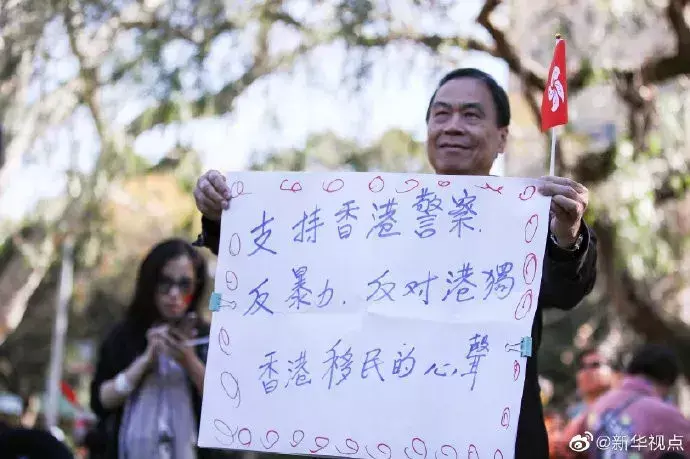 支持香港警察.
反暴力.反对港獨
香港移民的心聲
@新华视点